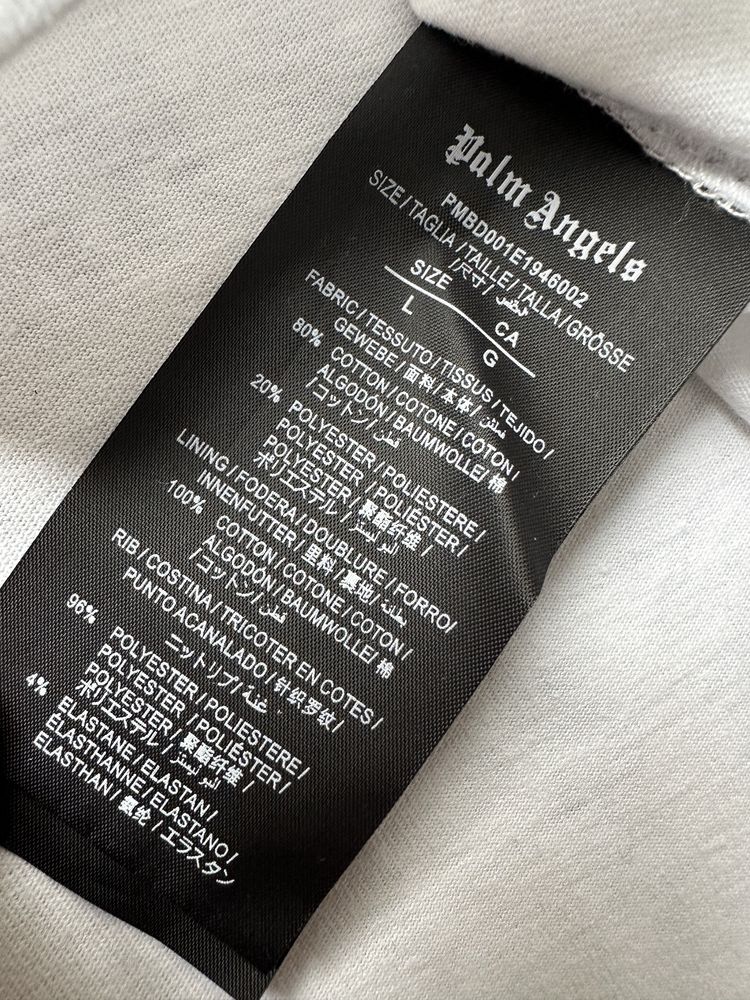 Palm Angels
PMBD001E1946002
SIZE / TAGLIA / TAILLE / TALLA / GRÖSSE
/尺寸 /
SIZE CA
L G
FABRIC / TESSUTO / TISSUS / TEJIDO /
GEWEBE / 面料 / 本体 /
80% COTTON / COTONE / COTON /
ALGODÓN / BAUMWOLLE / 棉
/ コットン / قطن /
20% POLYESTER / POLIESTERE /
POLYESTER / POLIÉSTER /
POLYESTER / 聚酯纤维 /
ポリエステル /
LINING / FODERA / DOUBLURE / FORRO /
INNENFUTTER / 里料 / 裏地 / بطانة
100% COTTON / COTONE / COTON /
ALGODÓN / BAUMWOLLE / 棉
/ コットン / قطن /
RIB / COSTINA / TRICOTER EN COTES /
PUNTO ACANALADO / 针织罗纹 /
ニットリブ /
96% POLYESTER / POLIESTERE /
POLYESTER / POLIÉSTER /
POLYESTER / 聚酯纤维 /
ポリエステル /
4% ELASTANE / ELASTAN /
ÉLASTHANNE / ELASTANO /
ELASTHAN / 氨纶 / エラスタン